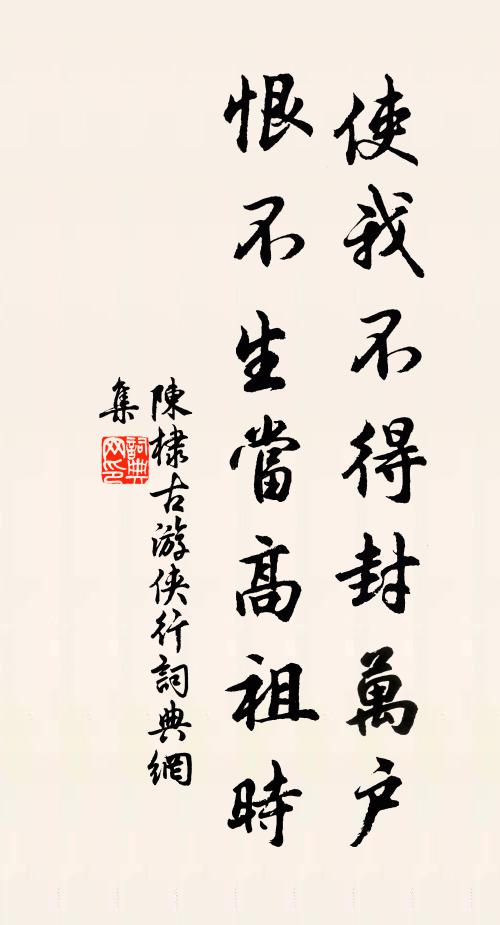 使我不得封萬户
恨不生當高祖時
陳棣古游俠行詞典網
集
詞典
网印